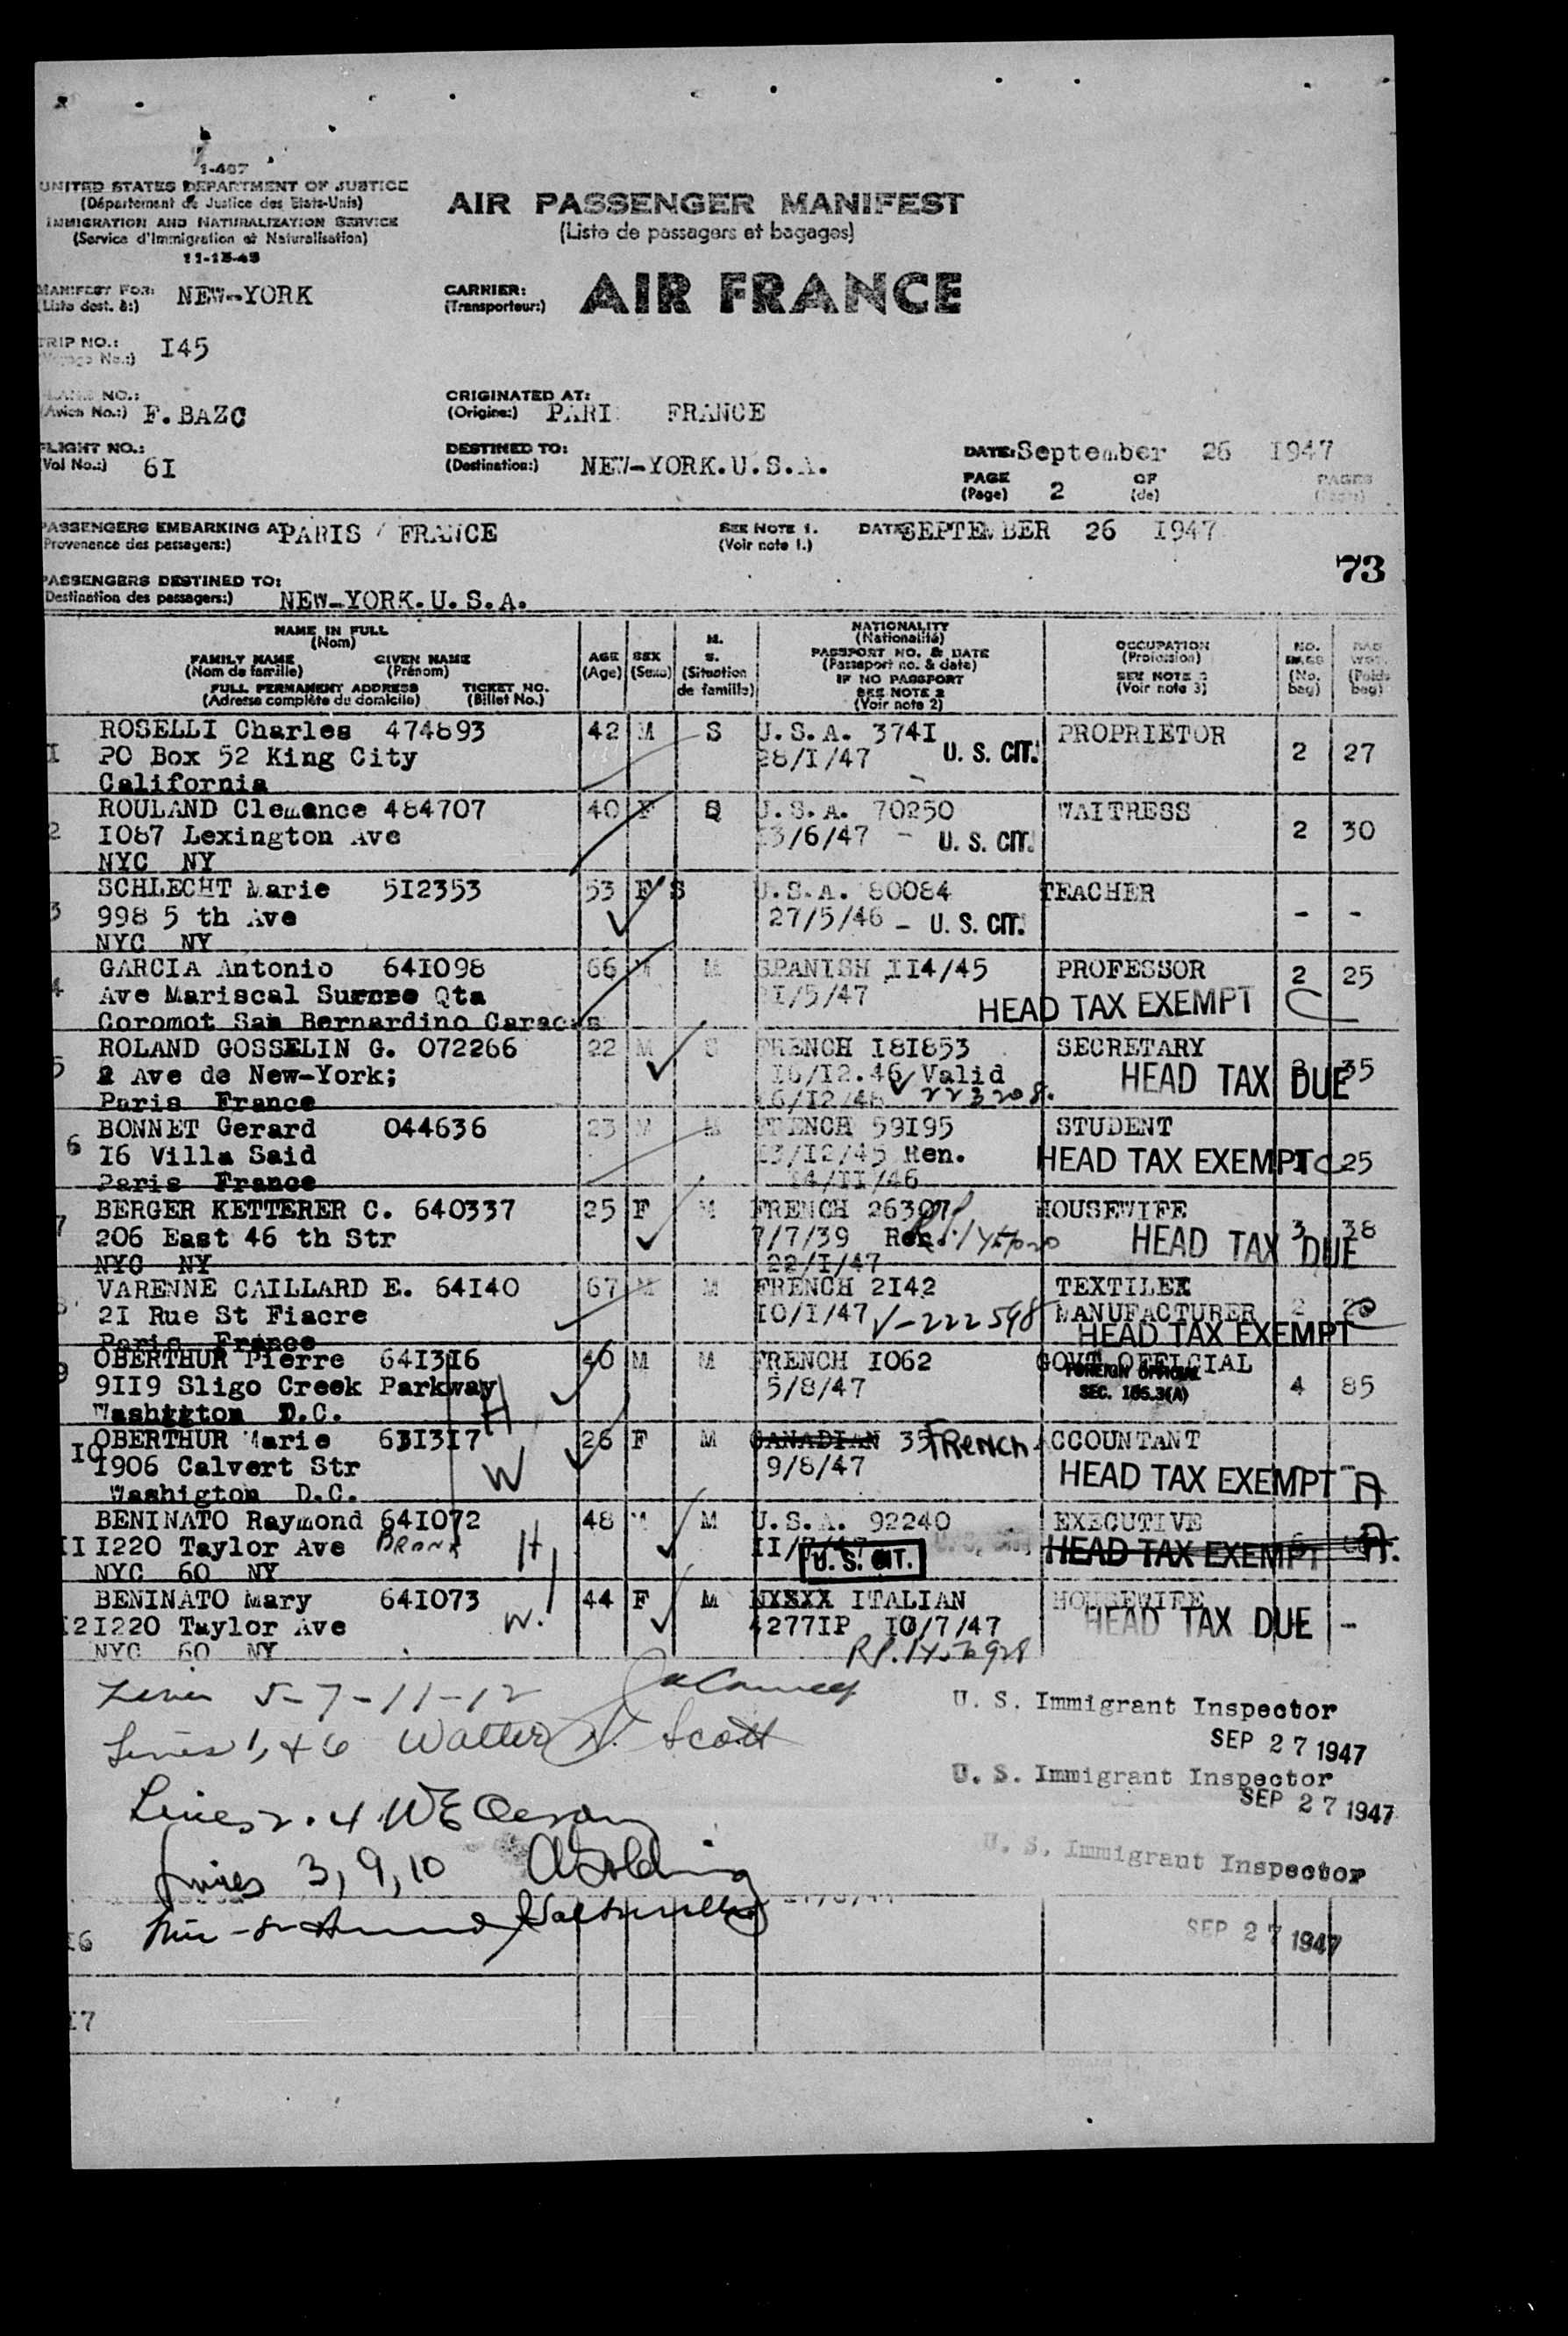 I-467
UNITED STATES DEPARTMENT OF JUSTICE
(Département de Justice des Etats-Unis)
IMMIGRATION AND NATURALIZATION SERVICE
(Service d'Immigration et Naturalisation)
11-15-45
AIR PASSENGER MANIFEST
(Liste de passagers et bagages)
MANIFEST FOR: NEW-YORK
(Liste dest. à:)
CARRIER: AIR FRANCE
(Transporteur:)
TRIP NO.: I45
NO.:
(Avion No.:) F.BAZC
ORIGINATED AT:
(Origine:) PARI FRANCE
FLIGHT NO.:
(Vol No.:) 6I
DESTINED TO:
(Destination:) NEW-YORK.U.S.A.
DATE: September 26 I947
PAGE 2 OF PAGES
(Page) (de)
PASSENGERS EMBARKING A PARIS FRANCE
Provenance des passagers:)
SEE NOTE 1.
(Voir note 1.)
DATE SEPTEMBER 26 I947
73
PASSENGERS DESTINED TO:
Destination des passagers:) NEW-YORK.U.S.A.
NAME IN FULL
(Nom)
FAMILY NAME GIVEN NAME
(Nom de famille) (Prénom)
FULL PERMANENT ADDRESS TICKET NO.
(Adresse complète du domicile) (Billet No.)
AGE
(Age)
SEX
(Sexe)
M.
S.
(Situation
de famille)
NATIONALITY
(Nationalité)
PASSPORT NO. & DATE
(Passeport no. & date)
IF NO PASSPORT
SEE NOTE 2
(Voir note 2)
OCCUPATION
(Profession)
SEE NOTE 3
(Voir note 3)
NO.
(No.
bag)
BAG
WGT.
(Poids
bag)
I ROSELLI Charles 474893 42 M S U.S.A. 374I PROPRIETOR
PO Box 52 King City 28/I/47 U. S. CIT. 2 27
California
2 ROULAND Clemance 484707 40 F S U.S.A. 70250 WAITRESS
I087 Lexington Ave 3/6/47 - U. S. CIT. 2 30
NYC NY
3 SCHLECHT Marie 5I2353 53 F S U.S.A. 80084 TEACHER
998 5 th Ave 27/5/46 - U. S. CIT. - -
NYC NY
4 GARCIA Antonio 64I098 66 M M SPANISH II4/45 PROFESSOR 2 25
Ave Mariscal Qta I/5/47 HEAD TAX EXEMPT
Coromot San Bernardino Caracas
5 ROLAND GOSSELIN G. 072266 22 M S FRENCH I8I853 SECRETARY
2 Ave de New-York; I6/I2.46 Valid HEAD TAX DUE 35
Paris France 6/I2/48 223208.
6 BONNET Gerard 044636 23 M FRENCH 59I95 STUDENT
I6 Villa Said I3/I2/45 Ren. HEAD TAX EXEMPT C 25
Paris France I4/II/46
7 BERGER KETTERER C. 640337 25 F M FRENCH 26307 HOUSEWIFE
206 East 46 th Str 7/7/39 Ren. HEAD TAX DUE 3 38
NYC NY 22/I/47
8 VARENNE CAILLARD E. 64I40 67 M M FRENCH 2I42 TEXTILE
2I Rue St Fiacre I0/I/47 V-222598 MANUFACTURER 2
Paris France HEAD TAX EXEMPT
9 OBERTHUR Pierre 64I3I6 40 M M FRENCH I062 GOVT OFFICIAL
9II9 Sligo Creek Parkway H 5/8/47 FOREIGN OFFICIAL SEC. 185.3(A) 4 85
Washigton D.C.
I0 OBERTHUR Marie 6 I3I7 26 F M CANADIAN 35 FRENCH ACCOUNTANT
I906 Calvert Str W 9/8/47 HEAD TAX EXEMPT A
Washigton D.C.
II BENINATO Raymond 64I072 48 M M U.S.A. 92240 EXECUTIVE
I220 Taylor Ave BRONX H II/7/47 U. S. CIT. HEAD TAX EXEMPT A.
NYC 60 NY
I2 BENINATO Mary 64I073 44 F M ITALIAN HOUSEWIFE
I220 Taylor Ave W. 4277IP I0/7/47 HEAD TAX DUE -
NYC 60 NY
Lines 5-7-11-12
U. S. Immigrant Inspector
SEP 27 1947
Lines 1, + 6 Walter N. Scott
U. S. Immigrant Inspector
SEP 27 1947
Lines 2. 4
Lines 3, 9, 10
U. S. Immigrant Inspector
SEP 27 1947
I6
I7